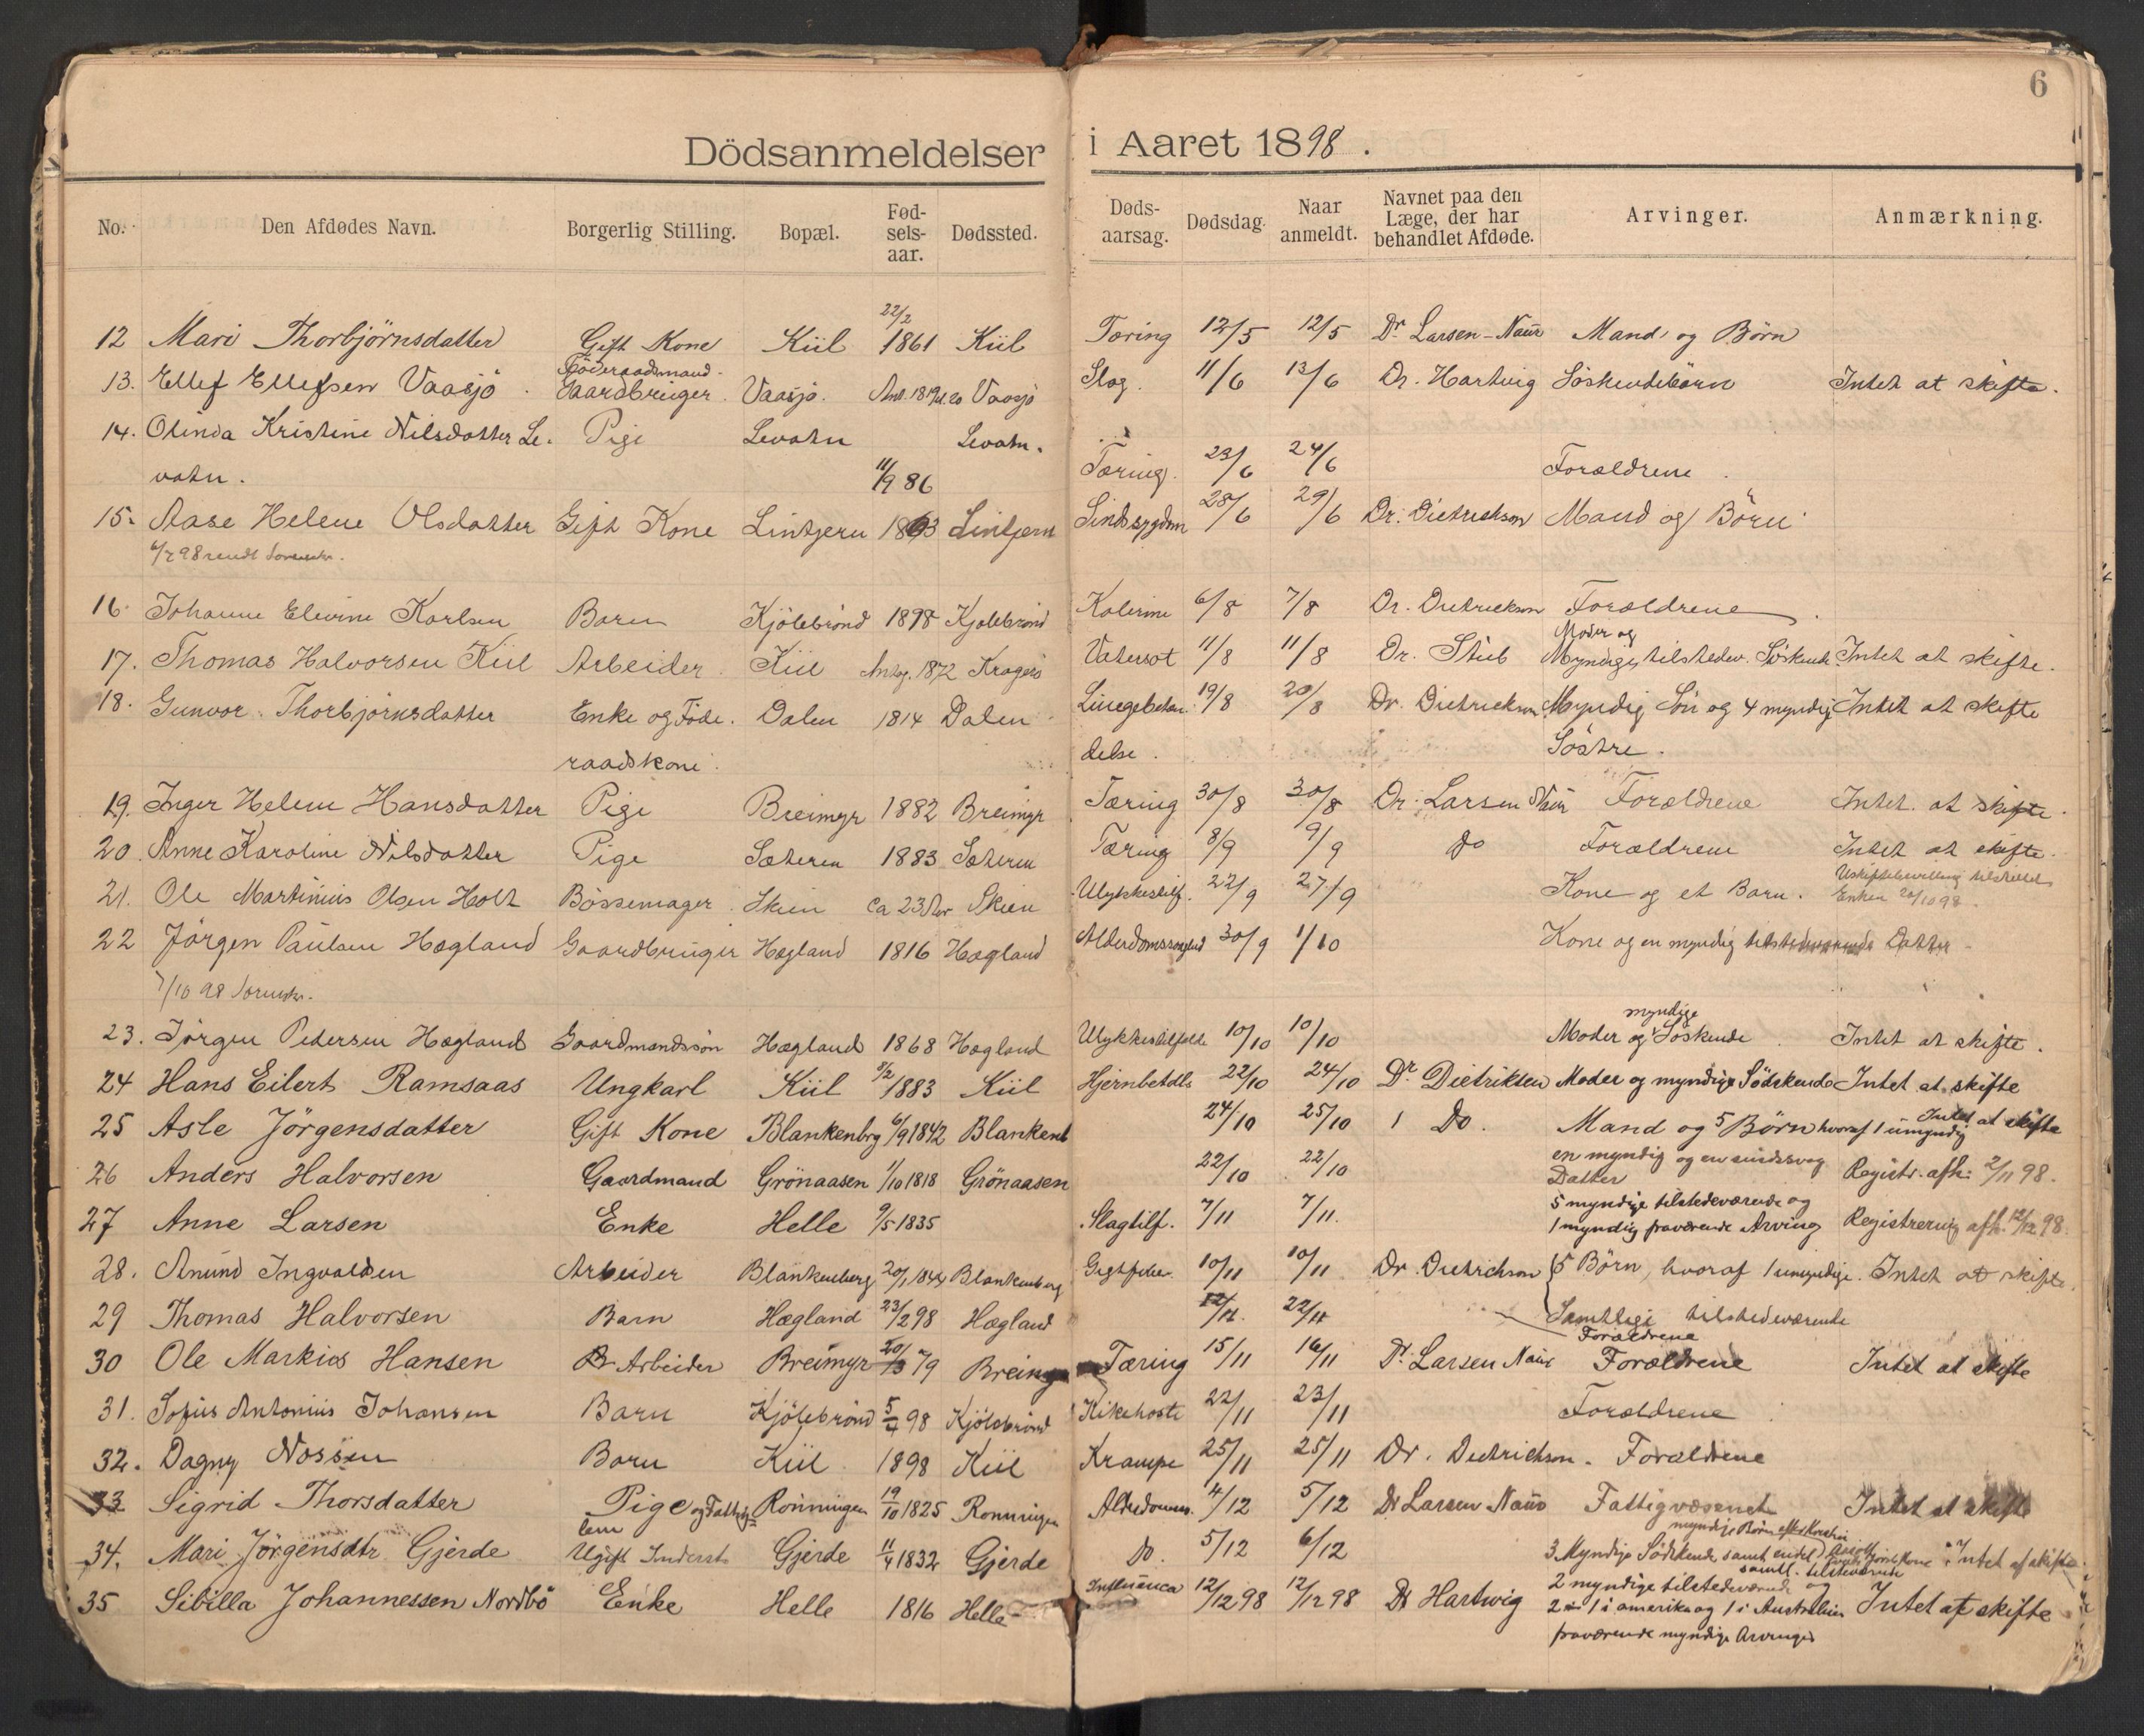 6
Dödsanmeldelser i Aaret 1898.
No. Den Afdødes Navn. Borgerlig Stilling. Bopæl. Fød-sels-aar. Dødssted. Døds-aarsag. Dødsdag. Naar anmeldt. Navnet paa den Læge, der har behandlet Afdøde. Arvinger. Anmærkning.
22/2
12 Mari Thorbjörnsdatter Gift Kone Kiil 1861 Kiil Tæring 12/5 12/5 Dr Larsen-Naur Mand og Börn
Föderaadsmand
13. Ellef Ellefsen Vaasjö Gaardbruger. Vaasjö. Vaasjö Slag. 11/6 13/6 Dr. Hartvig Söskendebörn Intet at skifte.
14. Olinda Kristine Nilsdatter Le- Pige Levatn Levatn.
vatn. 11/9 86 Tæring. 23/6 24/6 Forældrene.
15. Aase Helene Olsdatter Gift Kone Lintjern 1863 Lintjern Sindssygdom 28/6 29/6 Dr. Dietrichson Mand og Börn
6/7 98 sendt Sorenskr.
16. Johanne Elevine Karlsen Barn Kjölebrönd 1898 Kjölebrönd Kolerine 6/8 7/8 Dr. Dietrickson Forældrene
Moder og
17. Thomas Halvorsen Kiil Arbeider Kiil Antag. 1872 Kragerö Vatersot 11/8 11/8 Dr. Stub Myndige tilstedev. Söskende Intet at skifte.
18. Gunvor Thorbjörnsdatter Enke og Föde- Dalen 1814 Dalen Lungebetæn- 19/8 20/8 Dr. Dietrickson Myndig Sön og 4 myndig Intet at skifte
raadskone. delse. Söstre.
19. Inger Helene Hansdatter Pige Breimyr 1882 Breimyr Tæring 30/8 30/8 Dr. Larsen Naur Forældrene Intet at skifte.
20. Anne Karoline Nilsdatter Pige Sæteren 1883 Sæteren Tæring 8/9 9/9 Do Forældrene Intet at skifte.
21. Ole Martinius Olsen Holt Bössemager Skien ca 23 Aar Skien Ulykkestilf. 22/9 27/9 Kone og et Barn. Uskiftebevilling tilstillet
Enken 20/10 98.
22 Jörgen Paulsen Hægland Gaardbruger Hægland 1816 Hægland Alderdomssvaghed 30/9 1/10 Kone og en myndig tilstedeværende Datter
7/10 98 Sorenskr.
myndige
23. Jörgen Pedersen Hægland Gaardmandssön Hægland 1868 Hægland Ulykkestilfælde 10/10 10/10 Moder og Söskende. Intet at skifte.
24 Hans Eilert Ramsaas Ungkarl Kiil 1883 Kiil Hjernbetdls 22/10 24/10 Dr Dietriksen Moder og myndige Södskende Intet at skifte
25 Asle Jörgensdatter Gift Kone Blankenbrg 6/9 1842 Blankenb 24/10 25/10 Do. Mand og 5 Börn hvoraf 1 umyndig Intet at skifte
26 Anders Halvorsen Gaardmand Grönaasen 1/10 1818 Grönaasen 22/10 22/10 en myndig og en sindssvag
Datter Registr. afh. 2/11 98.
27 Anne Larsen Enke Helle 9/5 1835 Slagtilf. 7/11 7/11. 5 myndige tilstedeværende og
1 myndig fraværende Arving Registrering afh. 12/12 98.
28. Anund Ingvaldsen Arbeider Blankenberg 20/1 1844 Blankenberg Gigtfeber 10/11 10/11 Dr. Dietrichson 5 Börn, hvoraf 1 umyndige. Intet at skifte.
Samtlige tilstedeværende
29 Thomas Halvorsen Barn Hægland 23/2 98 Hægland 12/11. 22/11 Forældrene
30 Ole Markius Hansen Arbeider Breimyr 20/3 79 Breimyr Tæring 15/11 16/11 Dr. Larsen Naur Forældrene Intet at skifte
31. Sofus Antonius Johansen Barn Kjölebrönd 98 Kjölebrönd Kikehoste 22/11 23/11 Forældrene
32. Dagny Nossen Barn Kiil 1898 Kiil Krampe 25/11 25/11 Dr. Dietrichson. Forældrene
33 Sigrid Thorsdatter Pige og Fattig- Rönningen 19/10 1825 Rönningen Alderdomss. 4/12 5/12 Dr Larsen Naur Fattigvæsenet Intet at skifte
lem
34. Mari Jörgensdtr Gjerde Ugift Inderst Gjerde 11/4 1832 Gjerde Do. 5/12 6/12 3 Myndige Södskende samt Intet at skifte.
35 Sibilla Johannessen Nordbö Enke Helle 1816 Helle Influenca 12/12 98 12/12 98 Dr Hartwig 2 myndige tilstedeværende og
2 1 i amerika og 1 i Australien Intet at skifte
fraværende myndige Arvinger